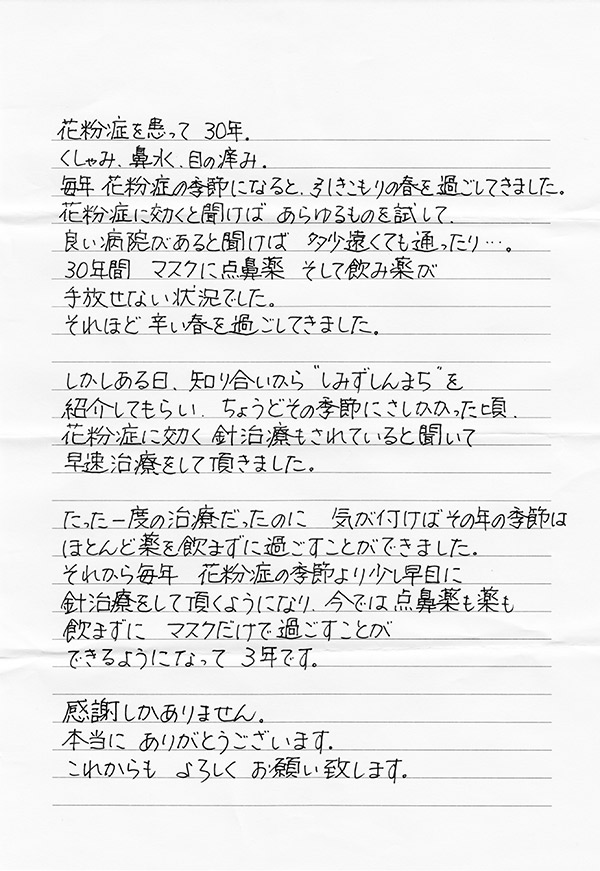 花粉症を患って 30年。
くしゃみ、鼻水、目の痒み。
毎年 花粉症の季節になると、引きこもりの春を過ごしてきました。
花粉症に効くと聞けば あらゆるものを試して、
良い病院があると聞けば 多少遠くても通ったり…。
30年間 マスクに点鼻薬 そして飲み薬が
手放せない状況でした。
それほど 辛い春を過ごしてきました。
しかしある日、知り合いから“しみずしんまち”を
紹介してもらい、ちょうどその季節にさしかかった頃、
花粉症に効く 針治療もされていると聞いて
早速治療をして頂きました。
たった一度の治療だったのに 気が付けばその年の季節は
ほとんど薬を飲まずに過ごすことができました。
それから毎年 花粉症の季節より少し早目に
針治療をして頂くようになり、今では点鼻薬も薬も
飲まずに マスクだけで過ごすことが
できるようになって 3年です。
感謝しかありません。
本当に ありがとうございます。
これからも よろしく お願い致します。